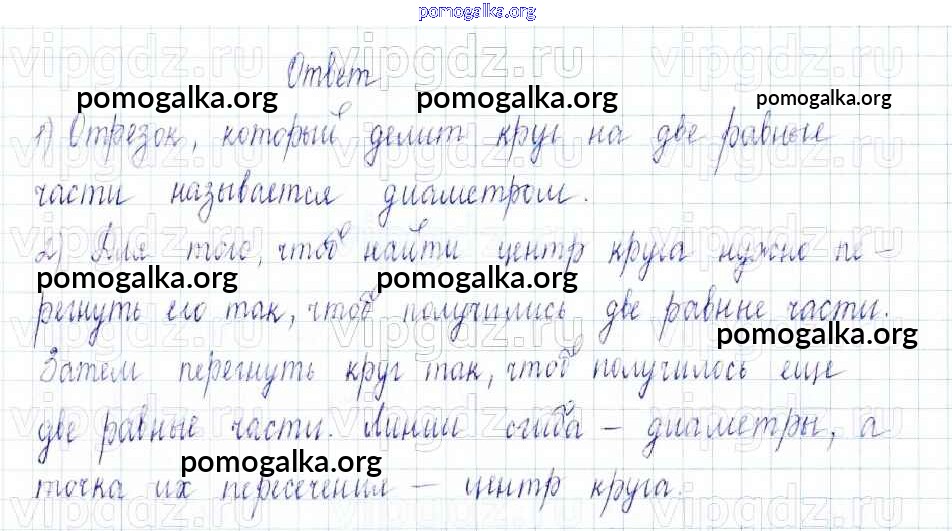 pomogalka.org
Ответ
pomogalka.org pomogalka.org pomogalka.org
1) Отрезок, который делит круг на две равные
части называется диаметром.
2) Для того, чтоб найти центр круга нужно пе-
pomogalka.org pomogalka.org
регнуть его так, чтоб получились две равные части.
pomogalka.org
Затем перегнуть круг так, чтоб получилось еще
две равные части. Линии сгиба – диаметры, а
pomogalka.org
точка их пересечения – центр круга.
vipgdz.ru vipgdz.ru vipgdz.ru